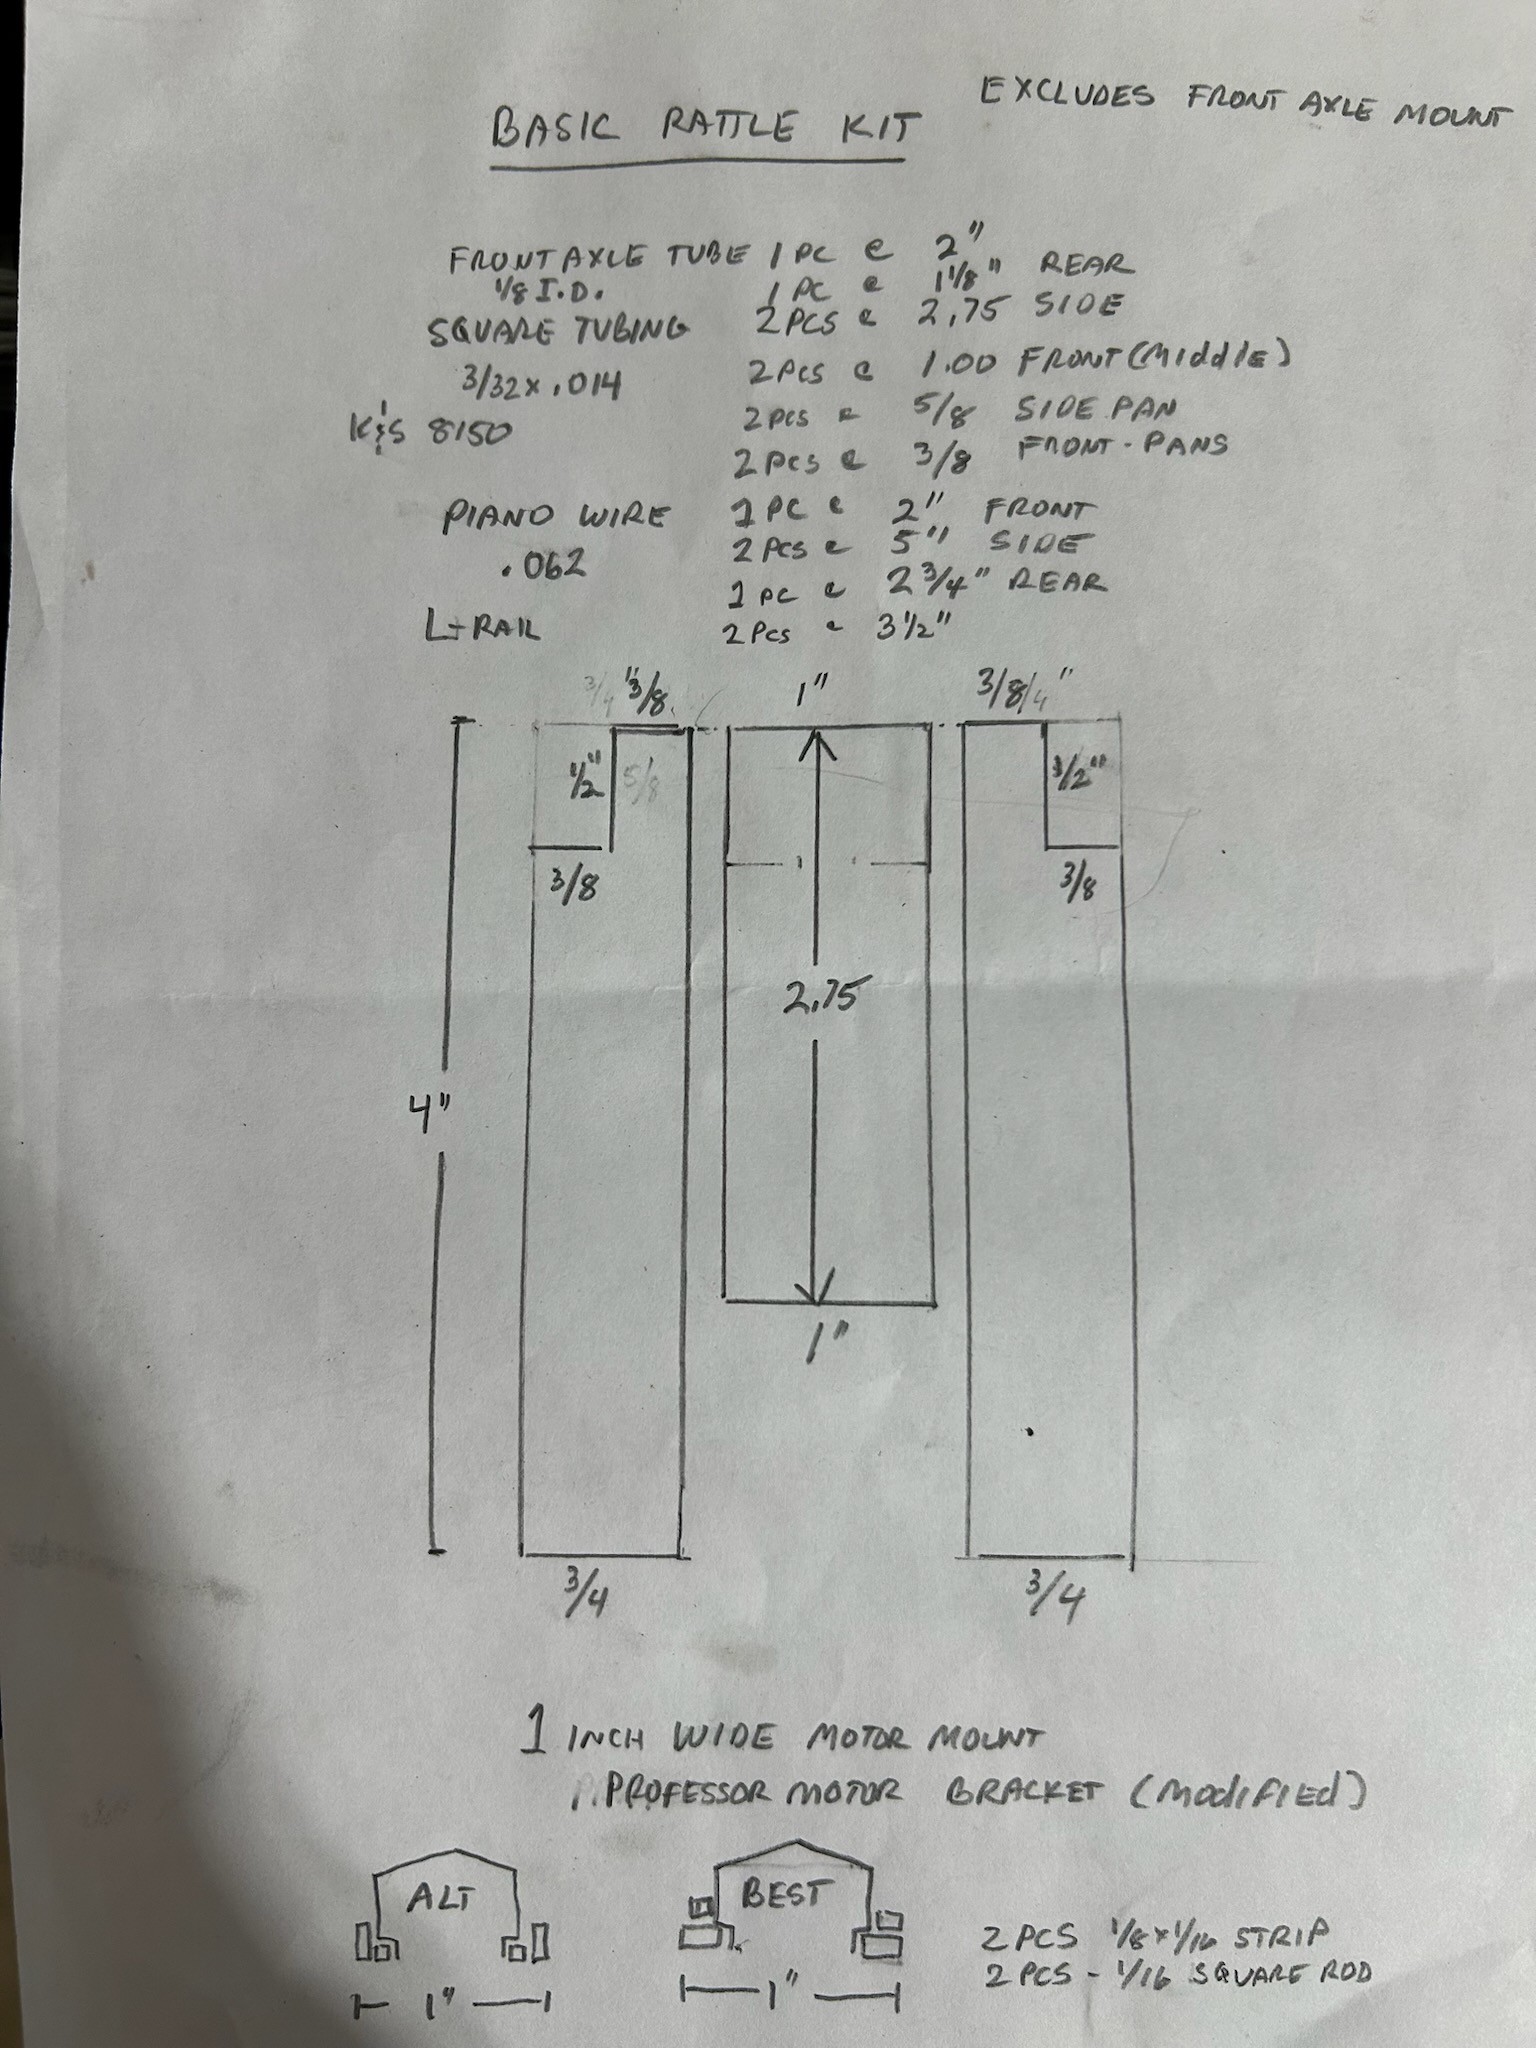 EXCLUDES FRONT AXLE MOUNT
BASIC RATTLE KIT
FRONT AXLE TUBE 1 PC @ 2"
1/8 I.D. 1 PC @ 1 1/8" REAR
SQUARE TUBING 2 PCS @ 2.75 SIDE
3/32 x .014 2 PCS @ 1.00 FRONT (MIDDLE)
K&S 8150 2 PCS @ 5/8 SIDE PAN
2 PCS @ 3/8 FRONT-PANS
PIANO WIRE 1 PC @ 2" FRONT
.062 2 PCS @ 5" SIDE
1 PC @ 2 3/4" REAR
L-RAIL 2 PCS - 3 1/2"
3/4" 3/8 1" 3/8 /4"
1/2" 5/8 1/2"
3/8 3/8
2.75
4"
1"
3/4 3/4
1 INCH WIDE MOTOR MOUNT
PROFESSOR MOTOR BRACKET (MODIFIED)
ALT BEST
2 PCS 1/8 x 1/16 STRIP
2 PCS - 1/16 SQUARE ROD
1" 1"